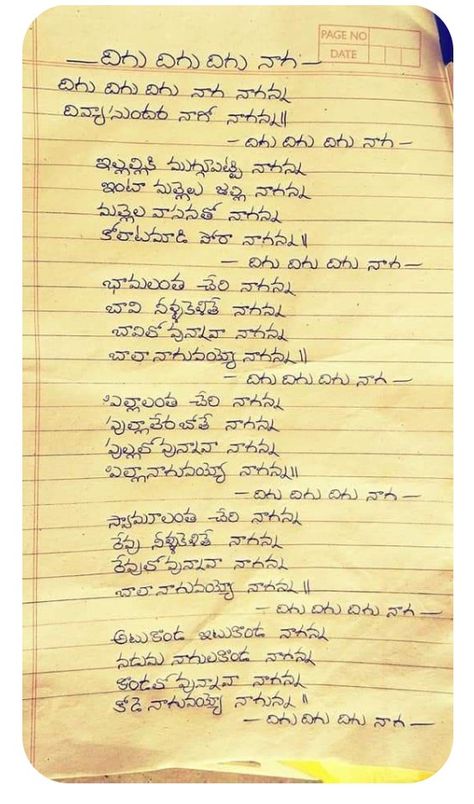 PAGE NO
DATE
— దిగు దిగు దిగు నాగ —
దిగు దిగు దిగు నాగ నాగన్న
దివ్యాసుందర నాగో నాగన్న॥
– దిగు దిగు దిగు నాగ –
ఇల్లల్లికి ముగ్గుపెట్టి నాగన్న
ఇంటా మల్లెలు జల్లి నాగన్న
మల్లెల వాసనతో నాగన్న
కోలాటమాడి పోరా నాగన్న॥
– దిగు దిగు దిగు నాగ –
భామలంత చేరి నాగన్న
బావి నీళ్ళకెళితే నాగన్న
బావిలో వున్నావా నాగన్న
బాలా నాగువయ్యో నాగన్న॥
– దిగు దిగు దిగు నాగ –
పిల్లాలంత చేరి నాగన్న
పుల్లాలేరబోతే నాగన్న
పుల్లలో వున్నావా నాగన్న
పిల్లా నాగువయ్యో నాగన్న॥
– దిగు దిగు దిగు నాగ –
స్వామూలంత చేరి నాగన్న
రేవు నీళ్ళకెళితే నాగన్న
రేవులో వున్నావా నాగన్న
బాలా నాగువయ్యో నాగన్న॥
– దిగు దిగు దిగు నాగ –
అటుకొండ ఇటుకొండ నాగన్న
నడుమ నాగులకొండ నాగన్న
కొండలో వున్నావా నాగన్న
కోడె నాగువయ్యో నాగున్న॥
– దిగు దిగు దిగు నాగ –